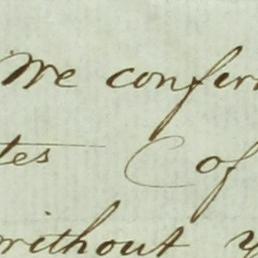 We confer
tes (of
without y